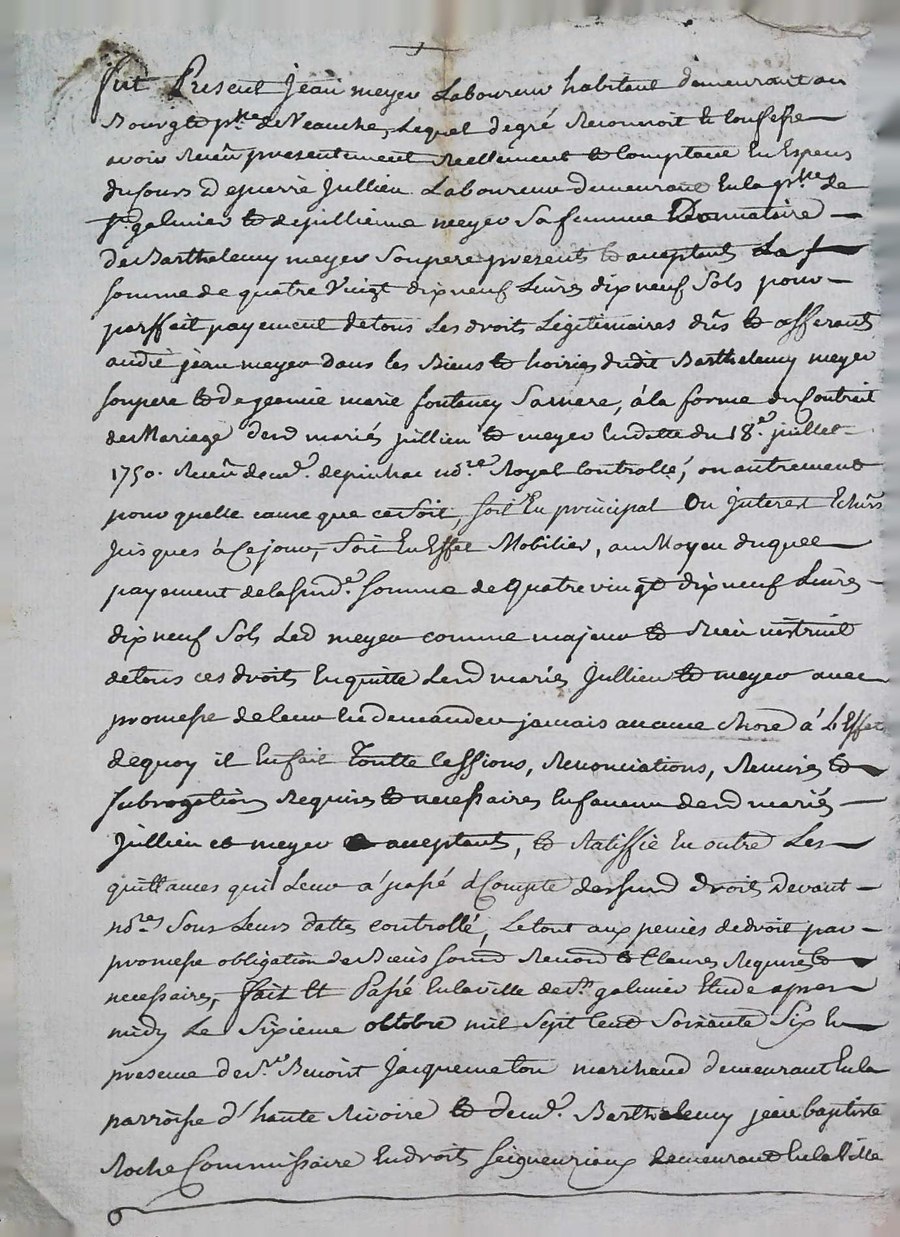 fut Present Jean meyer Laboureur habitant demeurant au
Bourg & p^sse de Veauche, Lequel de gré Reconnoit & Confesse
avoir Receu presentement Reellement & Comptant En Especes
du Cours De pierre Jullien Laboureur demeurant En la p^sse de
S^t galmier & de jullienne meyer Sa femme Donnataire
de Barthelemy meyer Son pere presents & aceptants La
somme de quatre Vingt dix neuf Livres dix neuf Sols pour
parffait payement de tous Les droits Légitimaires dûs & afferants
audit jean meyer dans les Biens & hoiries dudit Barthelemy meyer
son pere & de jeanne marie fontaney Sa mere, á la forme du Contrait
de Mariage desd mariés jullien & meyer En datte du 18^e juillet
1750 Receu de m^e depinhac no^re Royal Controllé, ou autrement
pour quelle cause que ce soit, soit En principal Ou Interest Echûs
Jusques á Ce jour, Soit En Effet Mobilier, au Moyen duquel
payement de la susd^e Somme de Quatre vingt dix neuf Livres
dix neuf Sols Led meyer comme majeur & bien instruit
de tous ces droits En quitte Lesd mariés Jullien & meyer avec
promesse de leur En demander jamais aucune Chose á L'Effet
de quoy il En fait toutte Cessions, Renonciations, Remises &
Subrogations Requises & necessaires En faveur desd mariés
Jullien et meyer aceptants, & Ratiffie En outre Les
quittances qu'il Leur a passé á Compte desd susd droits Devant
no^res Sous Leurs dattes controllé, Le tout aux peines de droit par
promesse obligation de Biens soumd Renond & Clauses Requises &
necessaires, fait Et Passé En la ville de S^t galmier Etude apres
midy Le Sixieme octobre mil Sept Cent Soixante Six En
presence de S^r Benoist Jacquemeton marchand demeurant En la
parroisse d'haute Rivoire & de m^e Barthelemy jean baptiste
Roche Commissaire En droits Seigneuriaux demeurant En la Ville